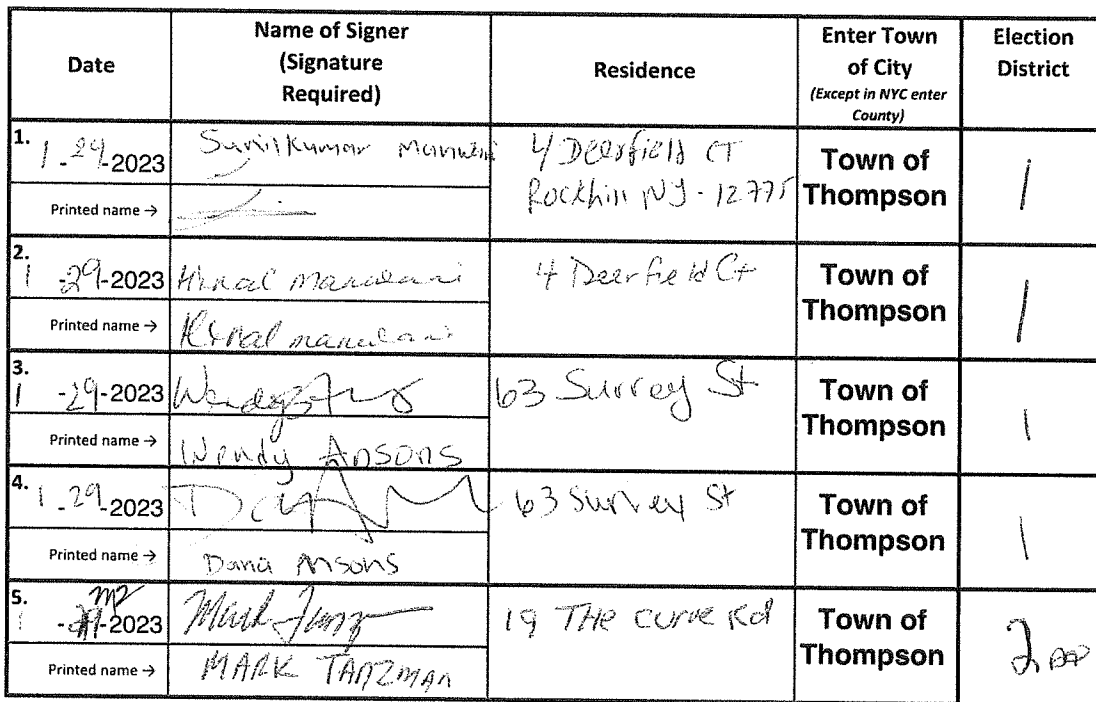 Date
Name of Signer
(Signature
Required)
Residence
Enter Town
of City
(Except in NYC enter
County)
Election
District
1.
1-29-2023
Sunilkumar
4 Deerfield CT
Rockhill NY - 12775
Town of
Thompson
1
Printed name →
2.
1-29-2023
Hinal
4 Deerfield Ct
Town of
Thompson
1
Printed name →
Hinal
3.
1-29-2023
Wendy
63 Surrey St
Town of
Thompson
1
Printed name →
Wendy Ansons
4.
1-29-2023
63 Surrey St
Town of
Thompson
1
Printed name →
Dana Ansons
5.
-2023
Mark
19 THe curve Rd
Town of
Thompson
2
Printed name →
MARK TANZMAN